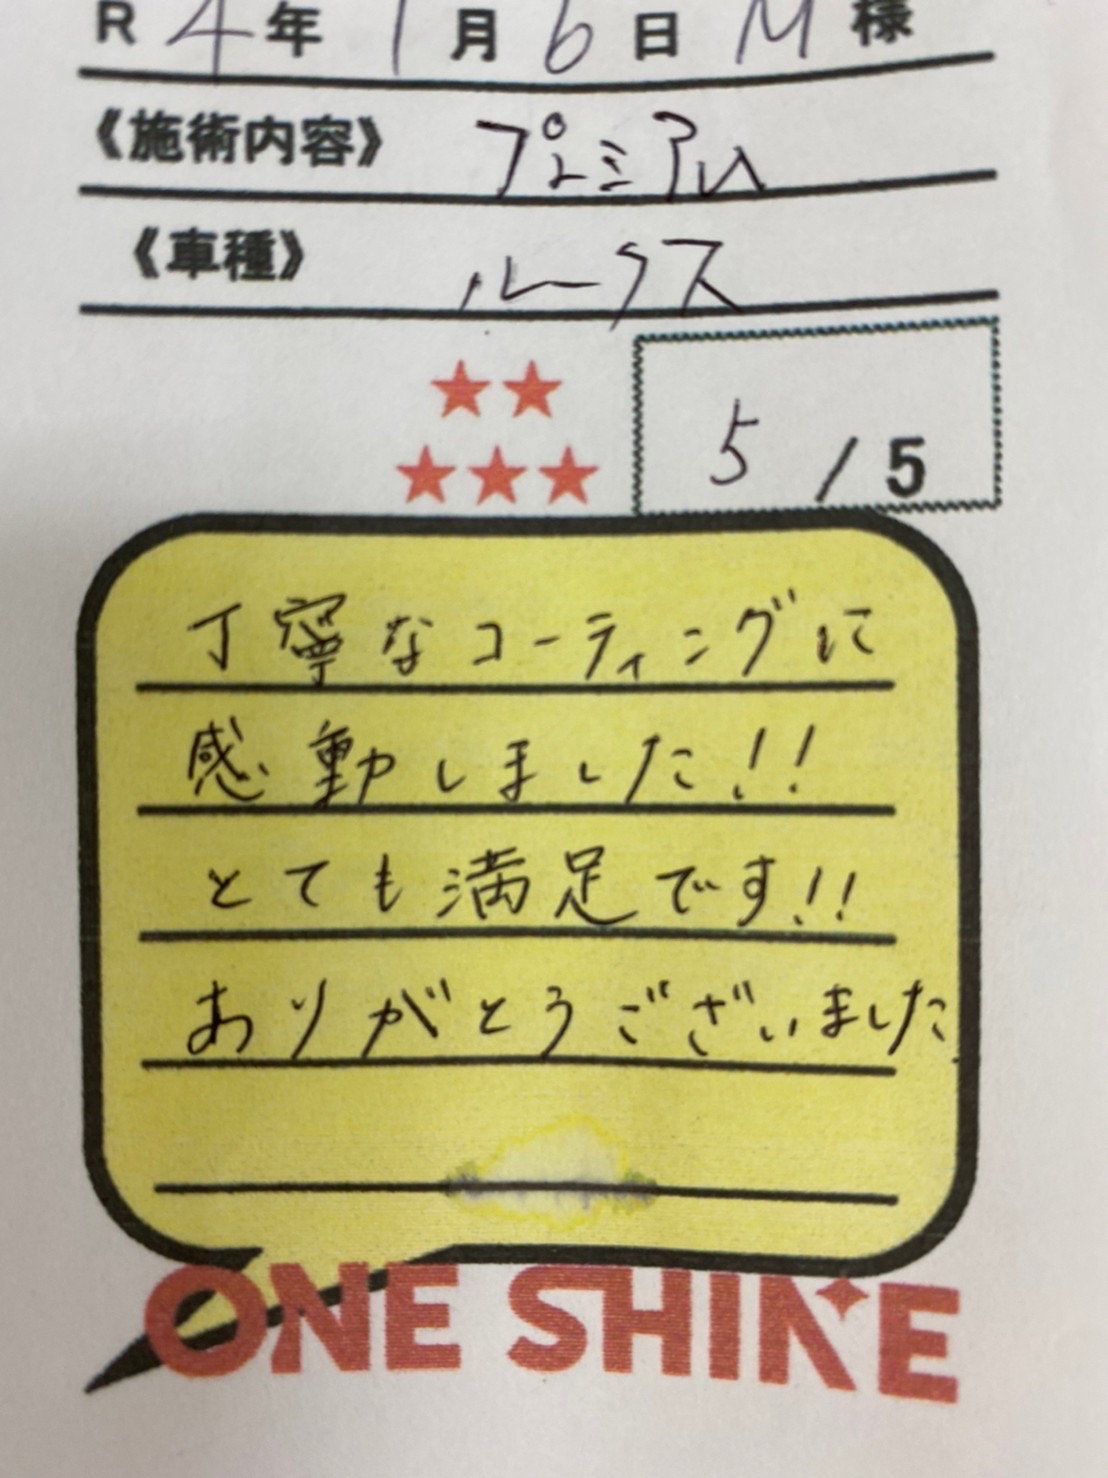 R4年1月6日 M様
《施術内容》 プレミアム
《車種》 ルークス
★★
★★★ 5/5
丁寧なコーティングに
感動しました!!
とても満足です!!
ありがとうございました
ONE SHINE